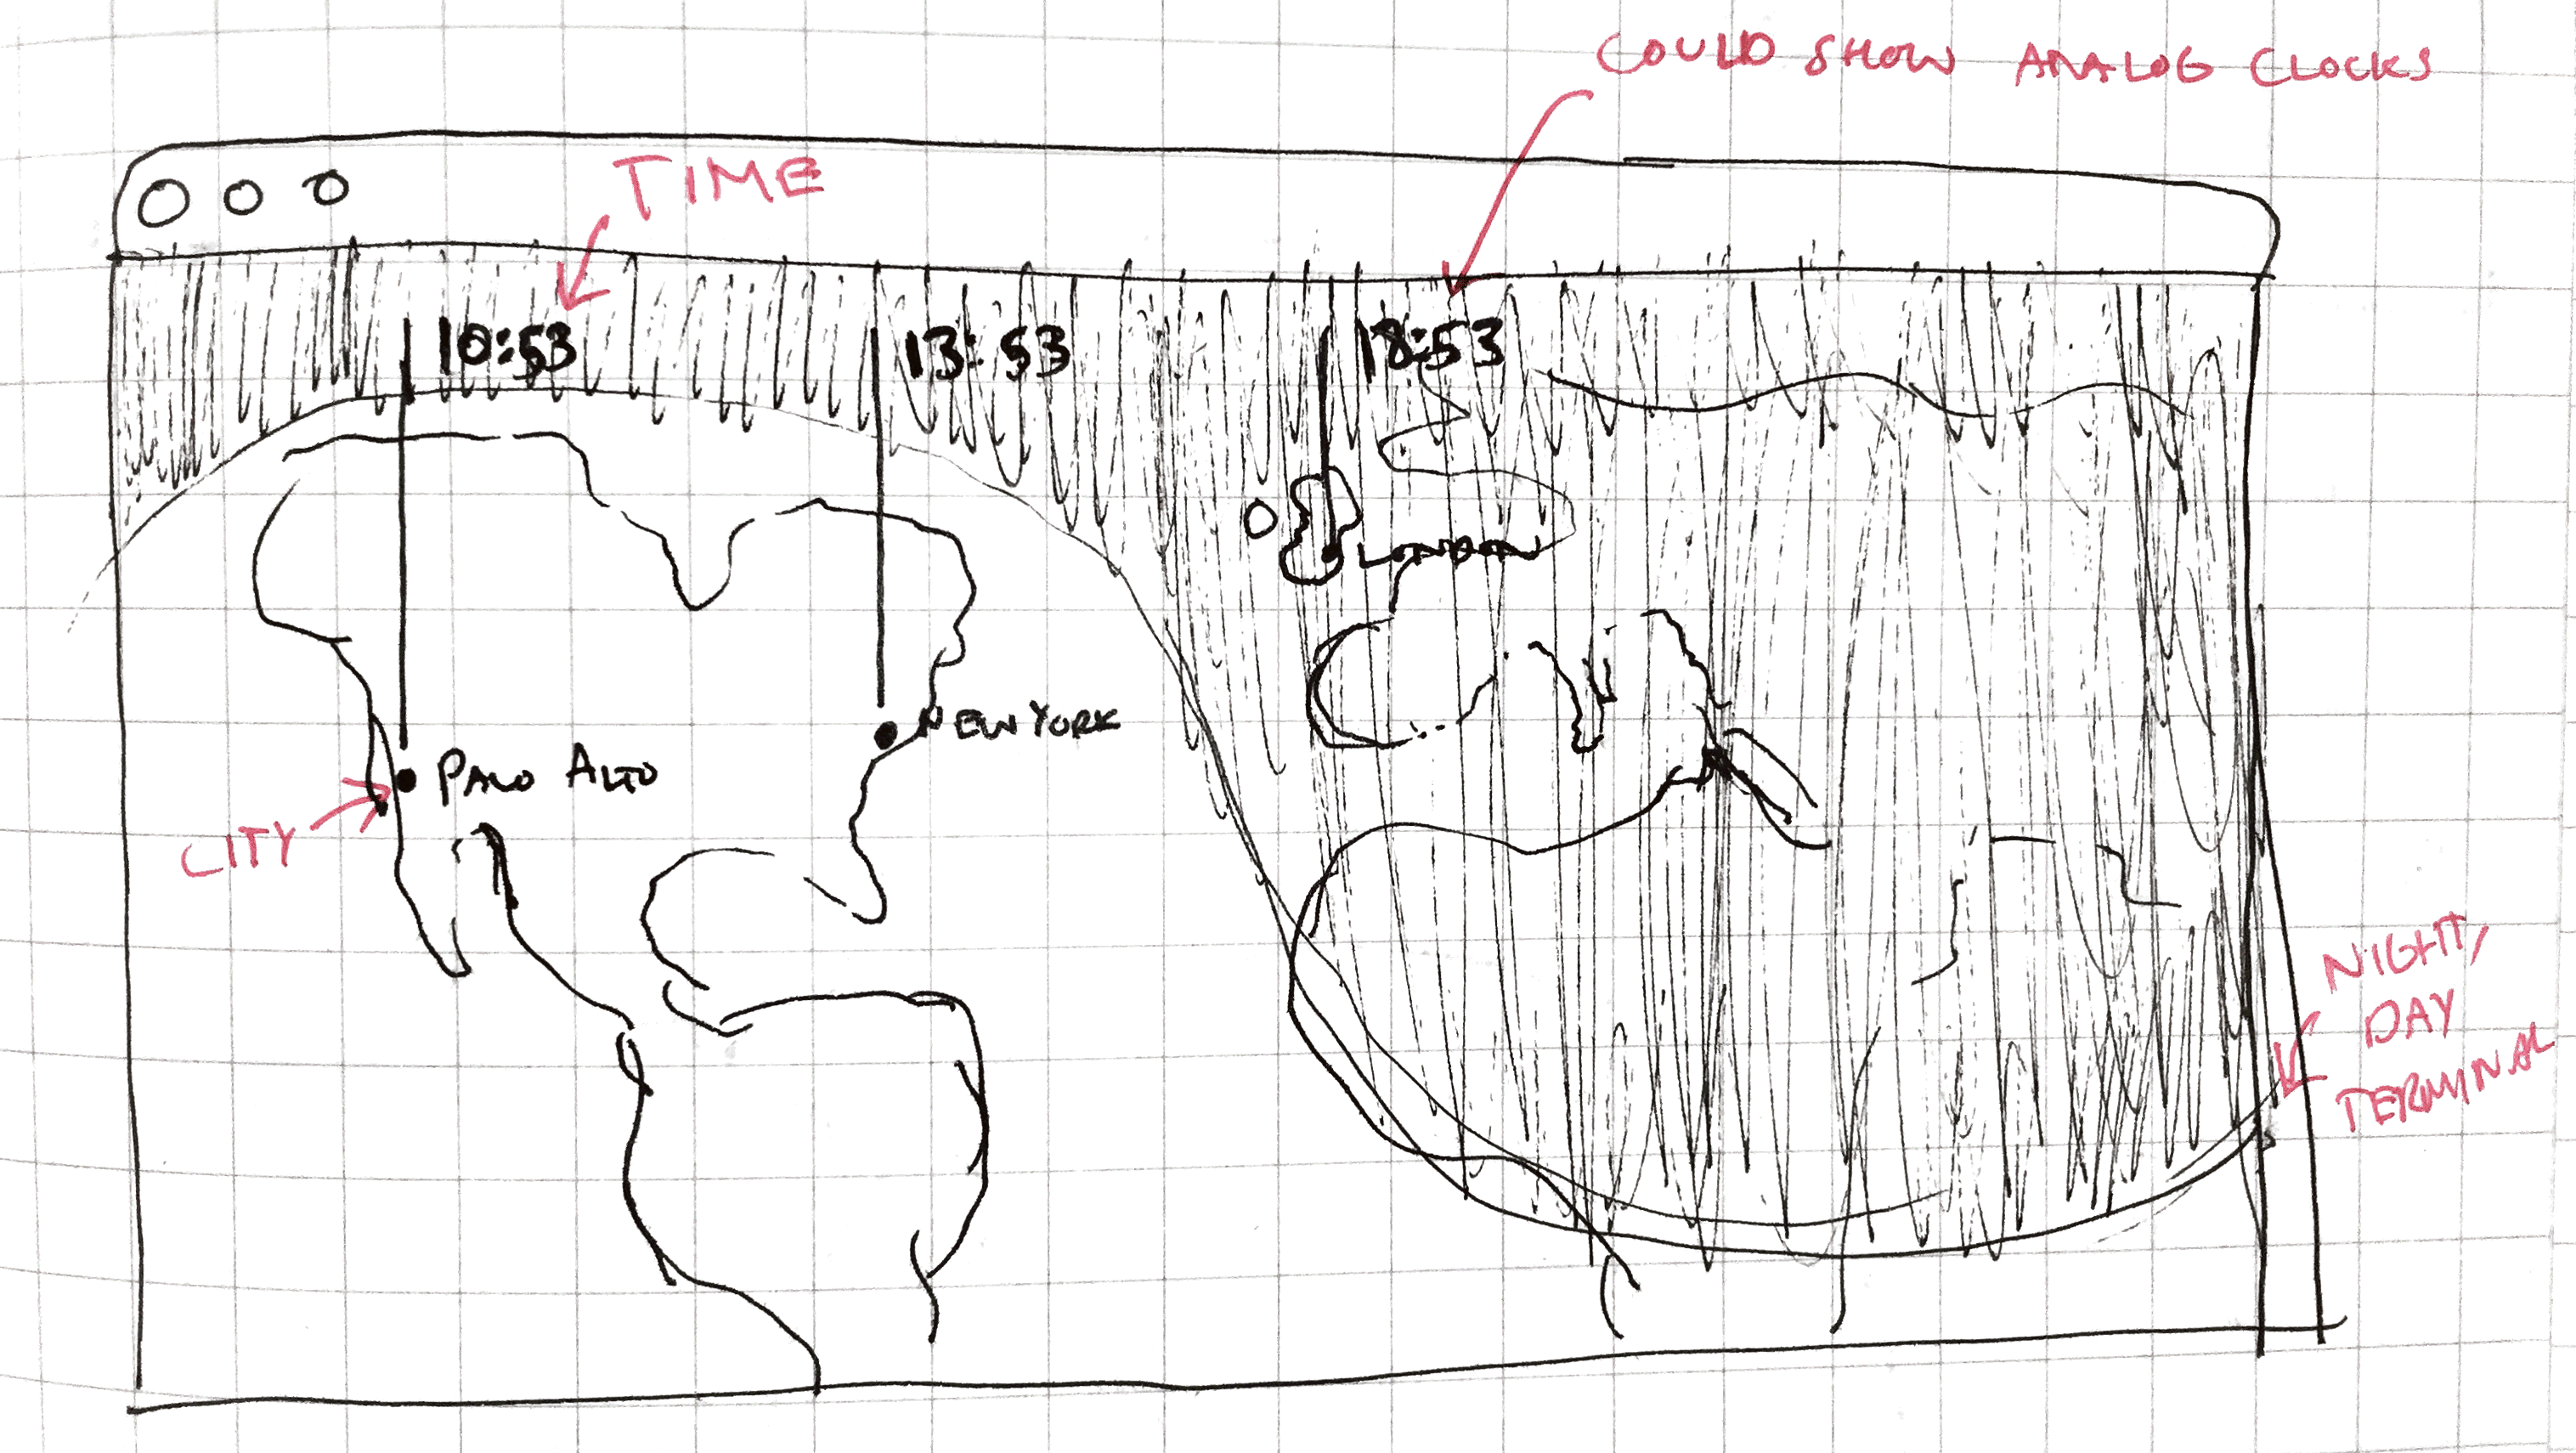 COULD SHOW ANALOG CLOCKS
TIME
10:53
13:53
18:53
LONDON
NEW YORK
PALO ALTO
CITY
NIGHT/
DAY
TERMINAL